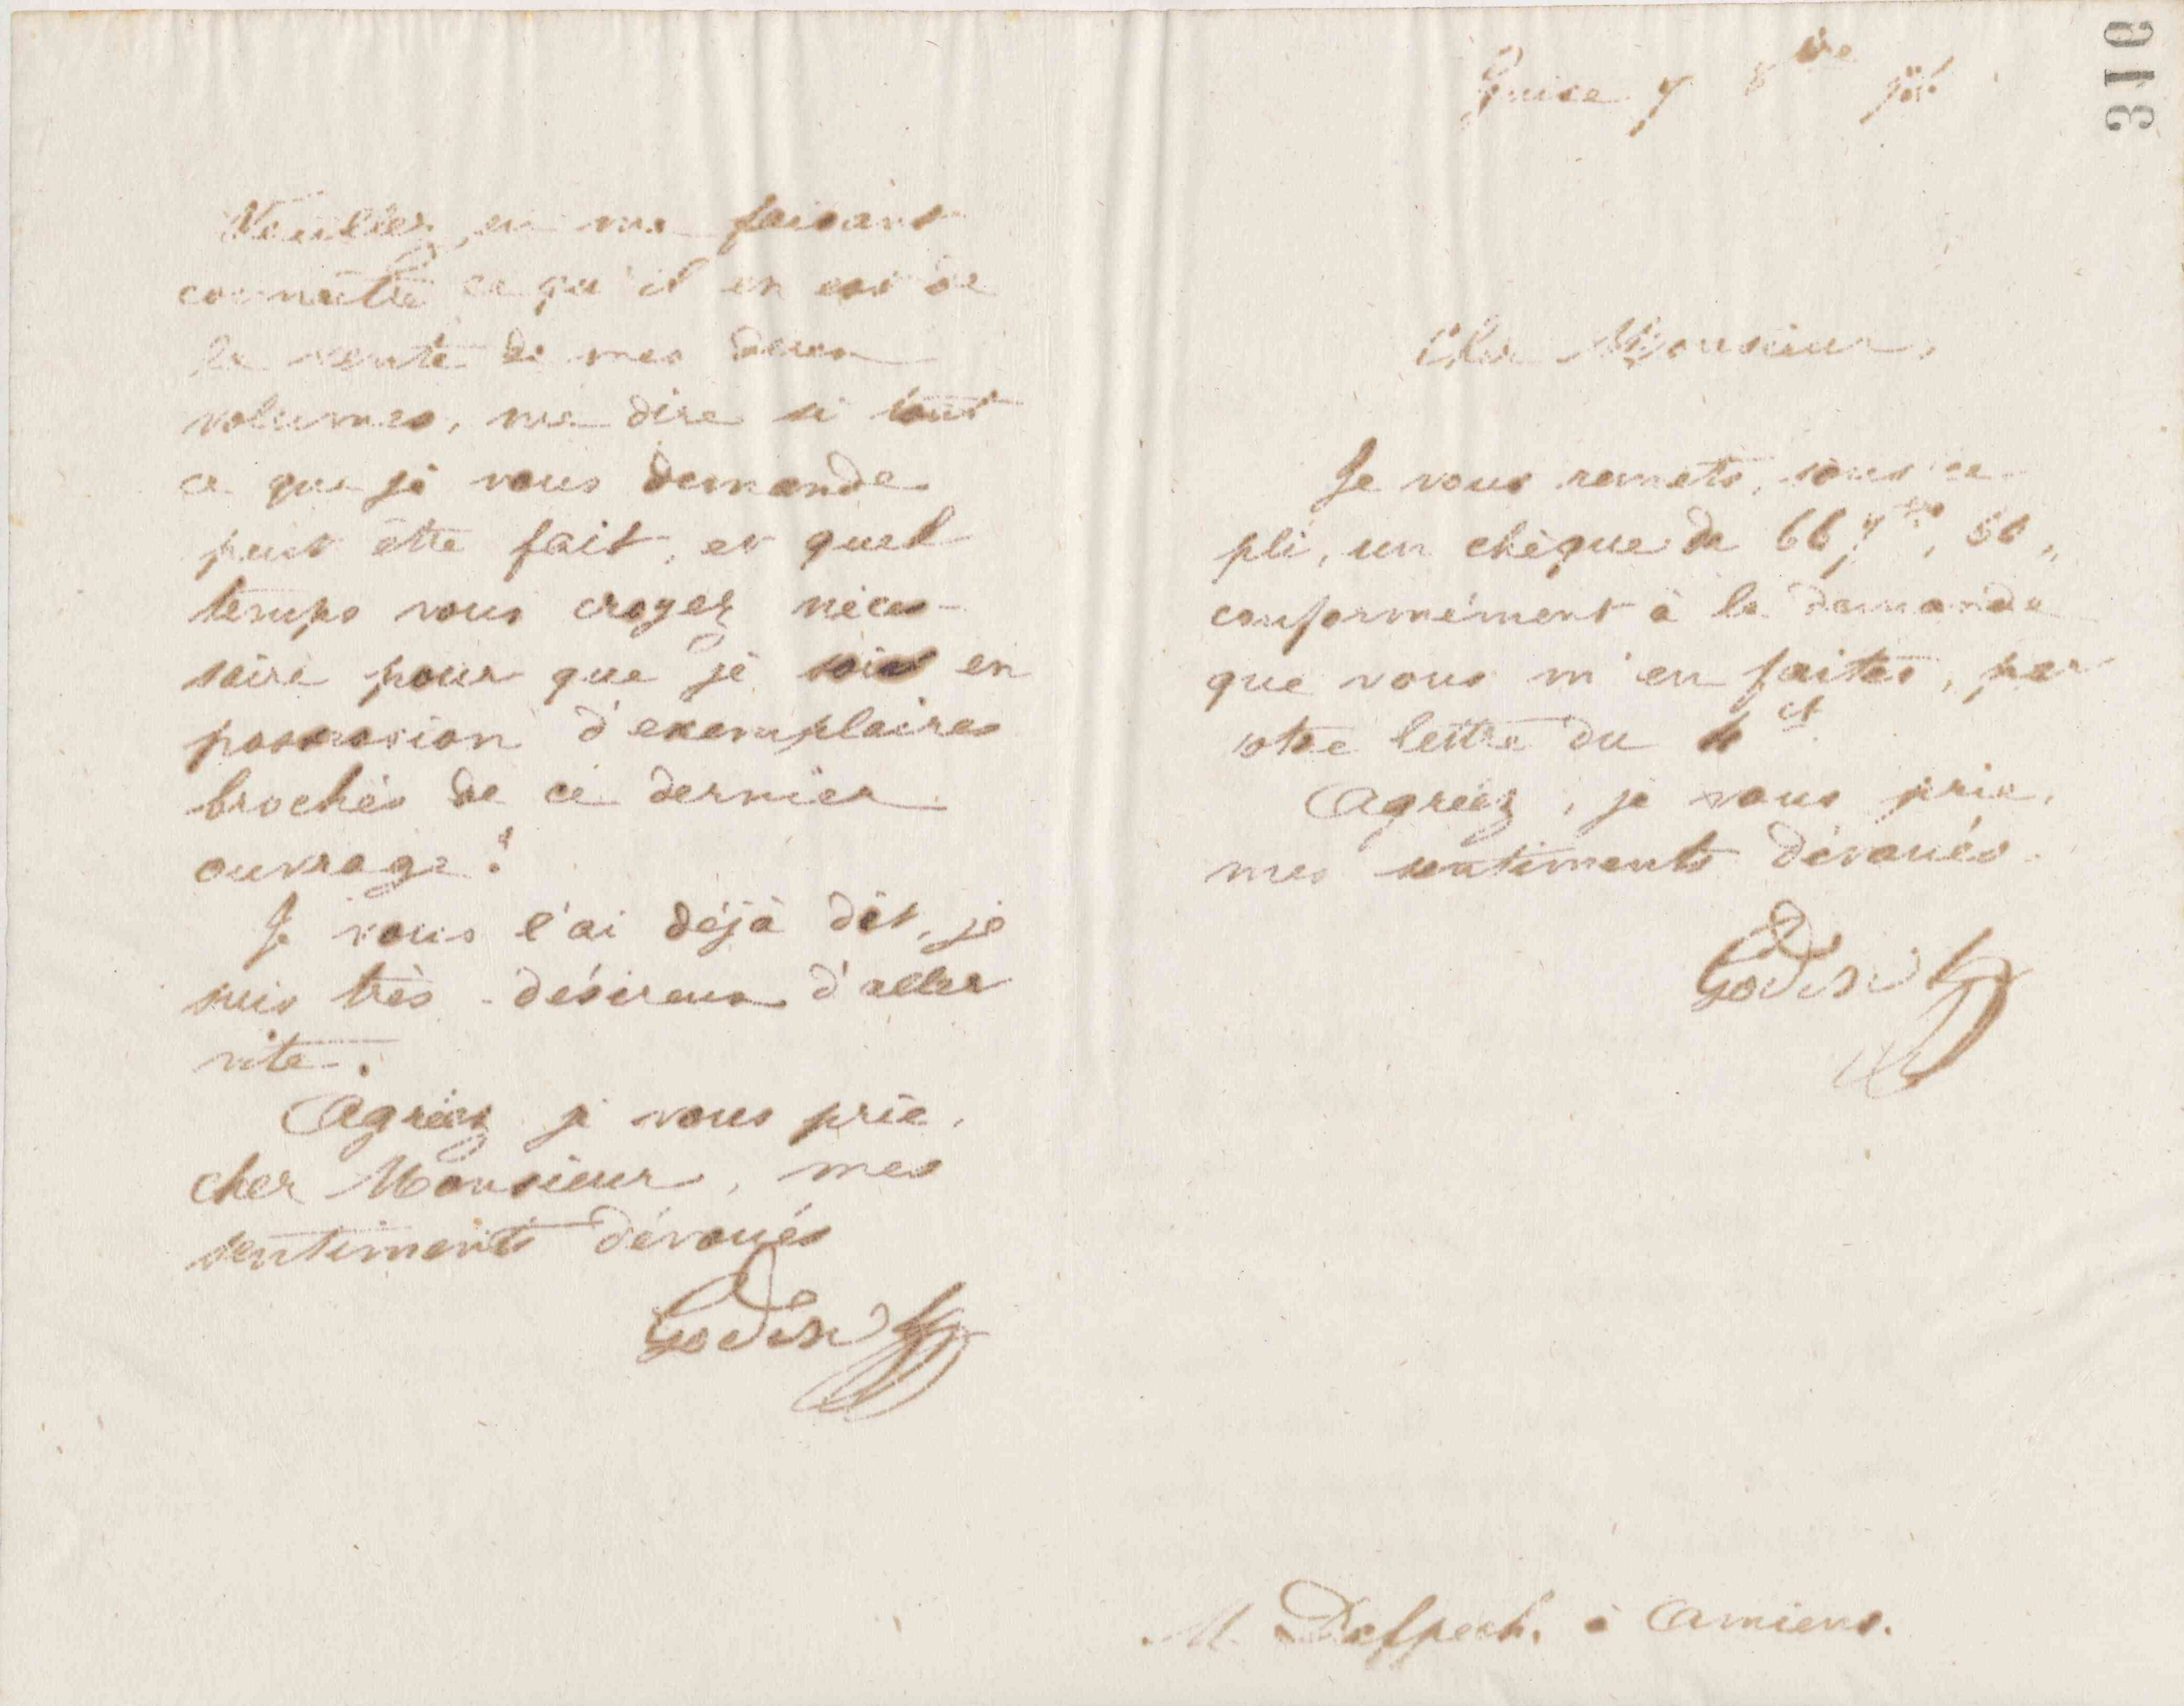 Veuillez, en me faisant
connaître ce qu'il en est de
la vente de mes deux
volumes, me dire si tout
ce que je vous demande
peut être fait, et quel
temps vous croyez néces-
saire pour que je sois en
possession d'exemplaires
brochés de ce dernier
ouvrage?
Je vous l'ai déjà dit, je
suis très-désireux d'aller
vite.
Agréez je vous prie,
cher Monsieur, mes
sentiments dévoués
Godin
316
Guise 7 8bre
Cher Monsieur,
Je vous remets, sous ce
pli, un chèque de 667
conformément à la demande
que vous m'en faites, par
votre lettre du 4 ct
Agréez, je vous prie,
mes sentiments dévoués.
Godin
M. Delpech. à Amiens.